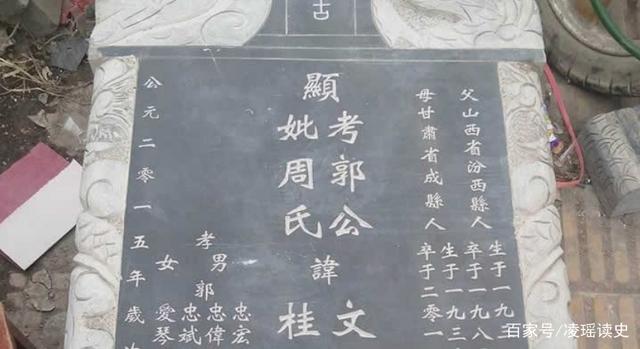 古
父山西省汾西縣人
生于一九
卒于一九八
母甘肅省成縣人
生于一九三
卒于二零一
顯
考郭公諱文
妣周氏桂
孝男郭
忠宏
忠偉
忠斌
女愛琴
公元二零一五年歲
百家号/凌瑶读史